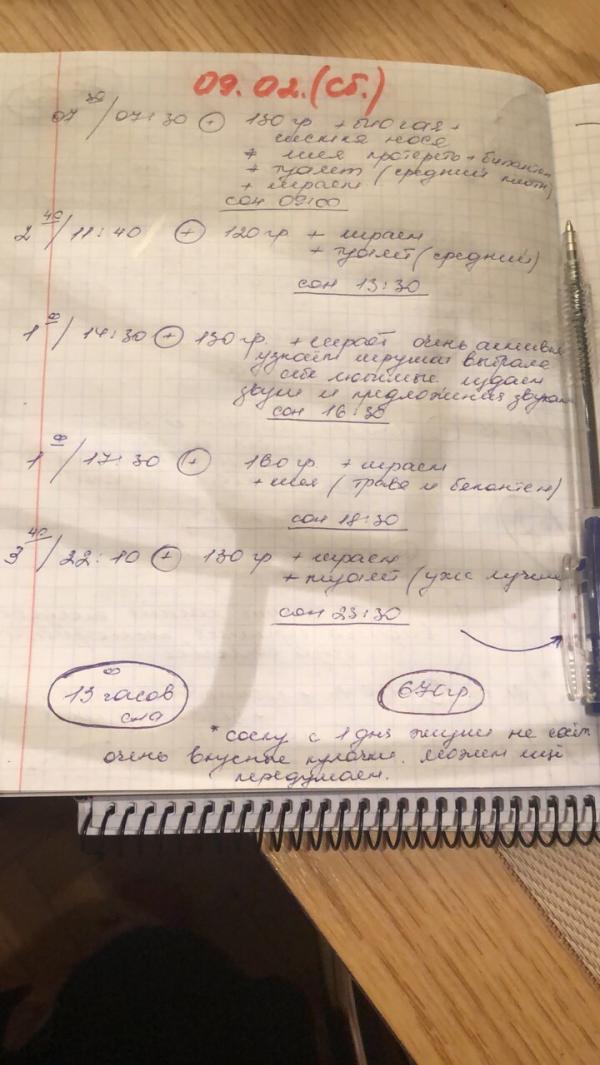 09.02.(сб.)
07 30 / 07:30 + 130 гр +
чистка носа
+ шея протереть + бипантен
+ туалет (средний
+ играем
сон 09:00
2 40 / 11:40 + 120 гр + играем
+ туалет (средний)
сон 13:30
1 00 / 14:30 + 130 гр. + играет очень активно
узнаём игрушки выбрала
себе любимые издаем
звуки и предложения звуками
сон 16:30
1 00 / 17:30 + 160 гр. + играем
+ шея (трава и бепантен)
сон 18:30
3 40 / 22:10 + 130 гр + играем
+ туалет (уже лучше)
сон 23:30
13 00 часов
сна
670 гр
* соску с 1 дня жизни не
очень вкусные кулачки. Может ещё
передумаем.